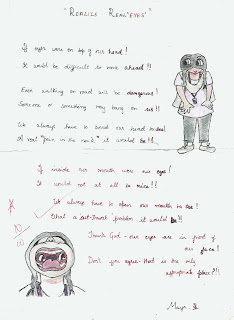 "REALLY REAL 'EYES'"
If eyes were on top of our head!
It would be difficult to move ahead!!
Even walking on road will be dangerous!
Someone or something may bang on us!!
We always have to bend our head to see!
A real "pain in the neck" it would be!!
If inside our mouth were our eyes!
It would not at all be nice!!
We always have to open our mouth to see!
What a problem it would be!!
Thank God - our eyes are in front of
our face!
Don't you agree - that is the only
appropriate place?!!